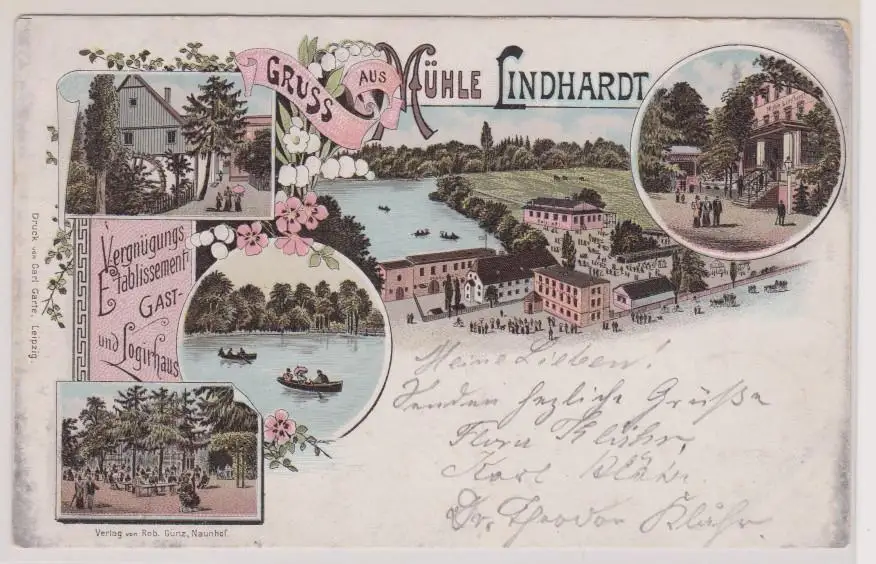 GRUSS AUS MÜHLE LINDHARDT
Vergnügungs
Etablissement
GAST-
und Logirhaus
Druck von Carl Garte, Leipzig.
Verlag von Rob. Günz, Naunhof.
Meine Lieben!
Senden herzliche Grüße
Flora Klähr,
Karl Klähr
Dr. Theodor Klähr